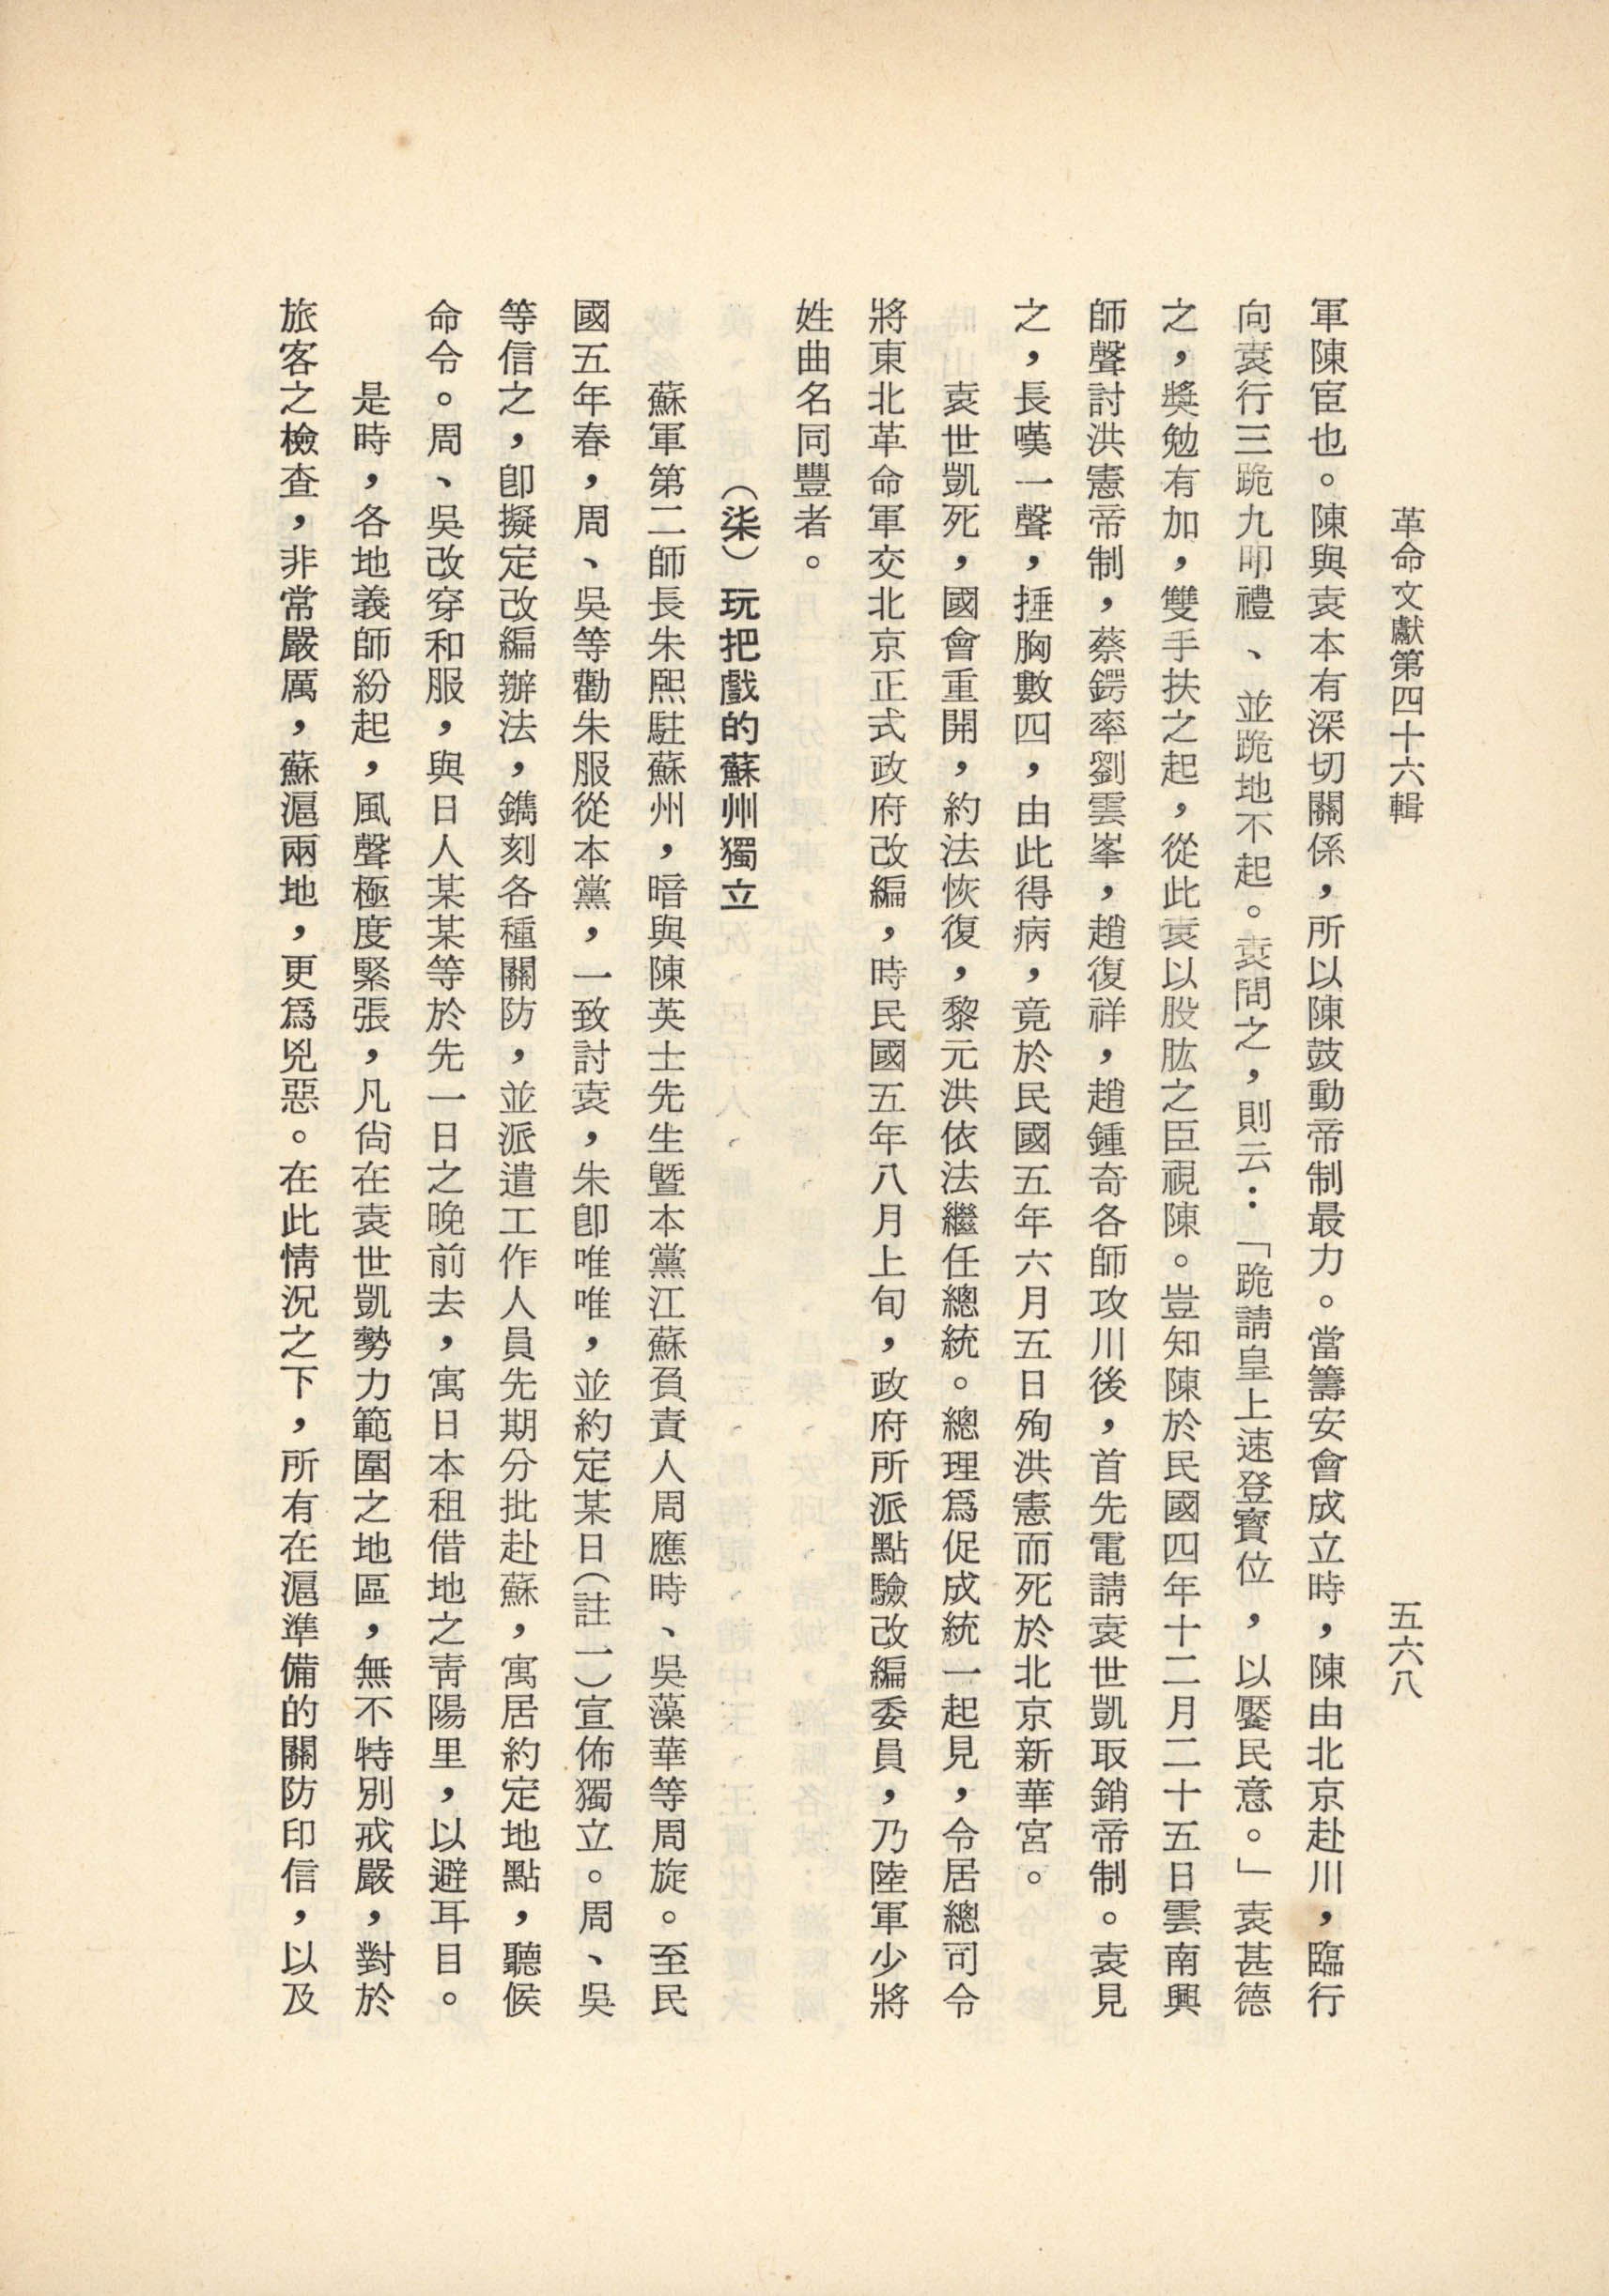 革命文獻第四十六輯
五六八
軍陳宧也。陳與袁本有深切關係，所以陳鼓動帝制最力。當籌安會成立時，陳由北京赴川，臨行
向袁行三跪九叩禮、並跪地不起。袁問之，則云：「跪請皇上速登寶位，以饜民意。」袁甚德
之，獎勉有加，雙手扶之起，從此袁以股肱之臣視陳。豈知陳於民國四年十二月二十五日雲南興
師聲討洪憲帝制，蔡鍔率劉雲峯，趙復祥，趙鍾奇各師攻川後，首先電請袁世凱取銷帝制。袁見
之，長嘆一聲，捶胸數四，由此得病，竟於民國五年六月五日殉洪憲而死於北京新華宮。
袁世凱死，國會重開，約法恢復，黎元洪依法繼任總統。總理爲促成統一起見，令居總司令
將東北革命軍交北京正式政府改編，時民國五年八月上旬，政府所派點驗改編委員，乃陸軍少將
姓曲名同豐者。
（柒）玩把戲的蘇州獨立
蘇軍第二師長朱熙駐蘇州，暗與陳英士先生曁本黨江蘇負責人周應時、吳藻華等周旋。至民
國五年春，周、吳等勸朱服從本黨，一致討袁，朱卽唯唯，並約定某日（註一）宣佈獨立。周、吳
等信之，卽擬定改編辦法，鐫刻各種關防，並派遣工作人員先期分批赴蘇，寓居約定地點，聽候
命令。周、吳改穿和服，與日人某某等於先一日之晚前去，寓日本租借地之靑陽里，以避耳目。
是時，各地義師紛起，風聲極度緊張，凡尙在袁世凱勢力範圍之地區，無不特別戒嚴，對於
旅客之檢查，非常嚴厲，蘇滬兩地，更爲兇惡。在此情況之下，所有在滬準備的關防印信，以及